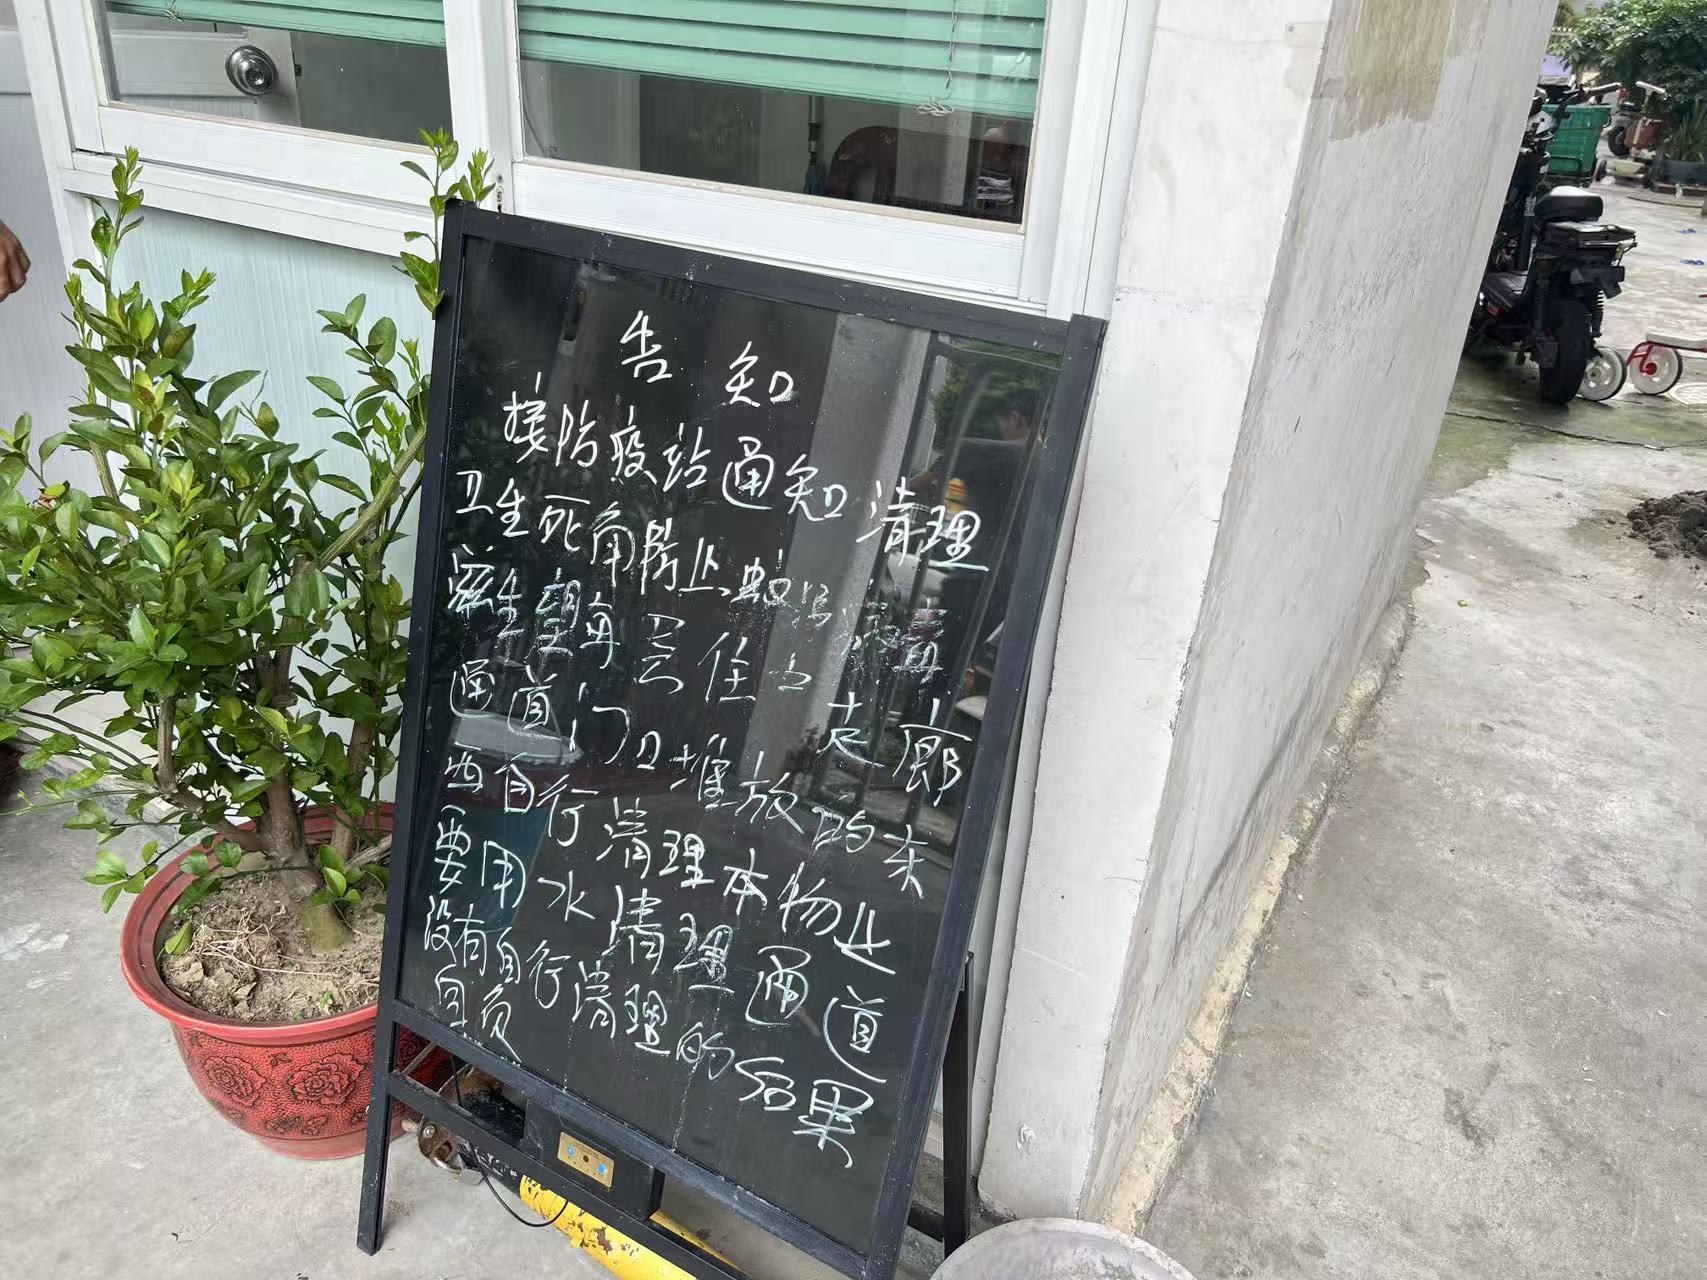 告知
接防疫站通知清理
卫生死角防止蚊 病毒
滋生望每 住 走廊
通道门口堆放的东
西自行清理本物止
要用水清理通道
没有自行清理的后果
自负